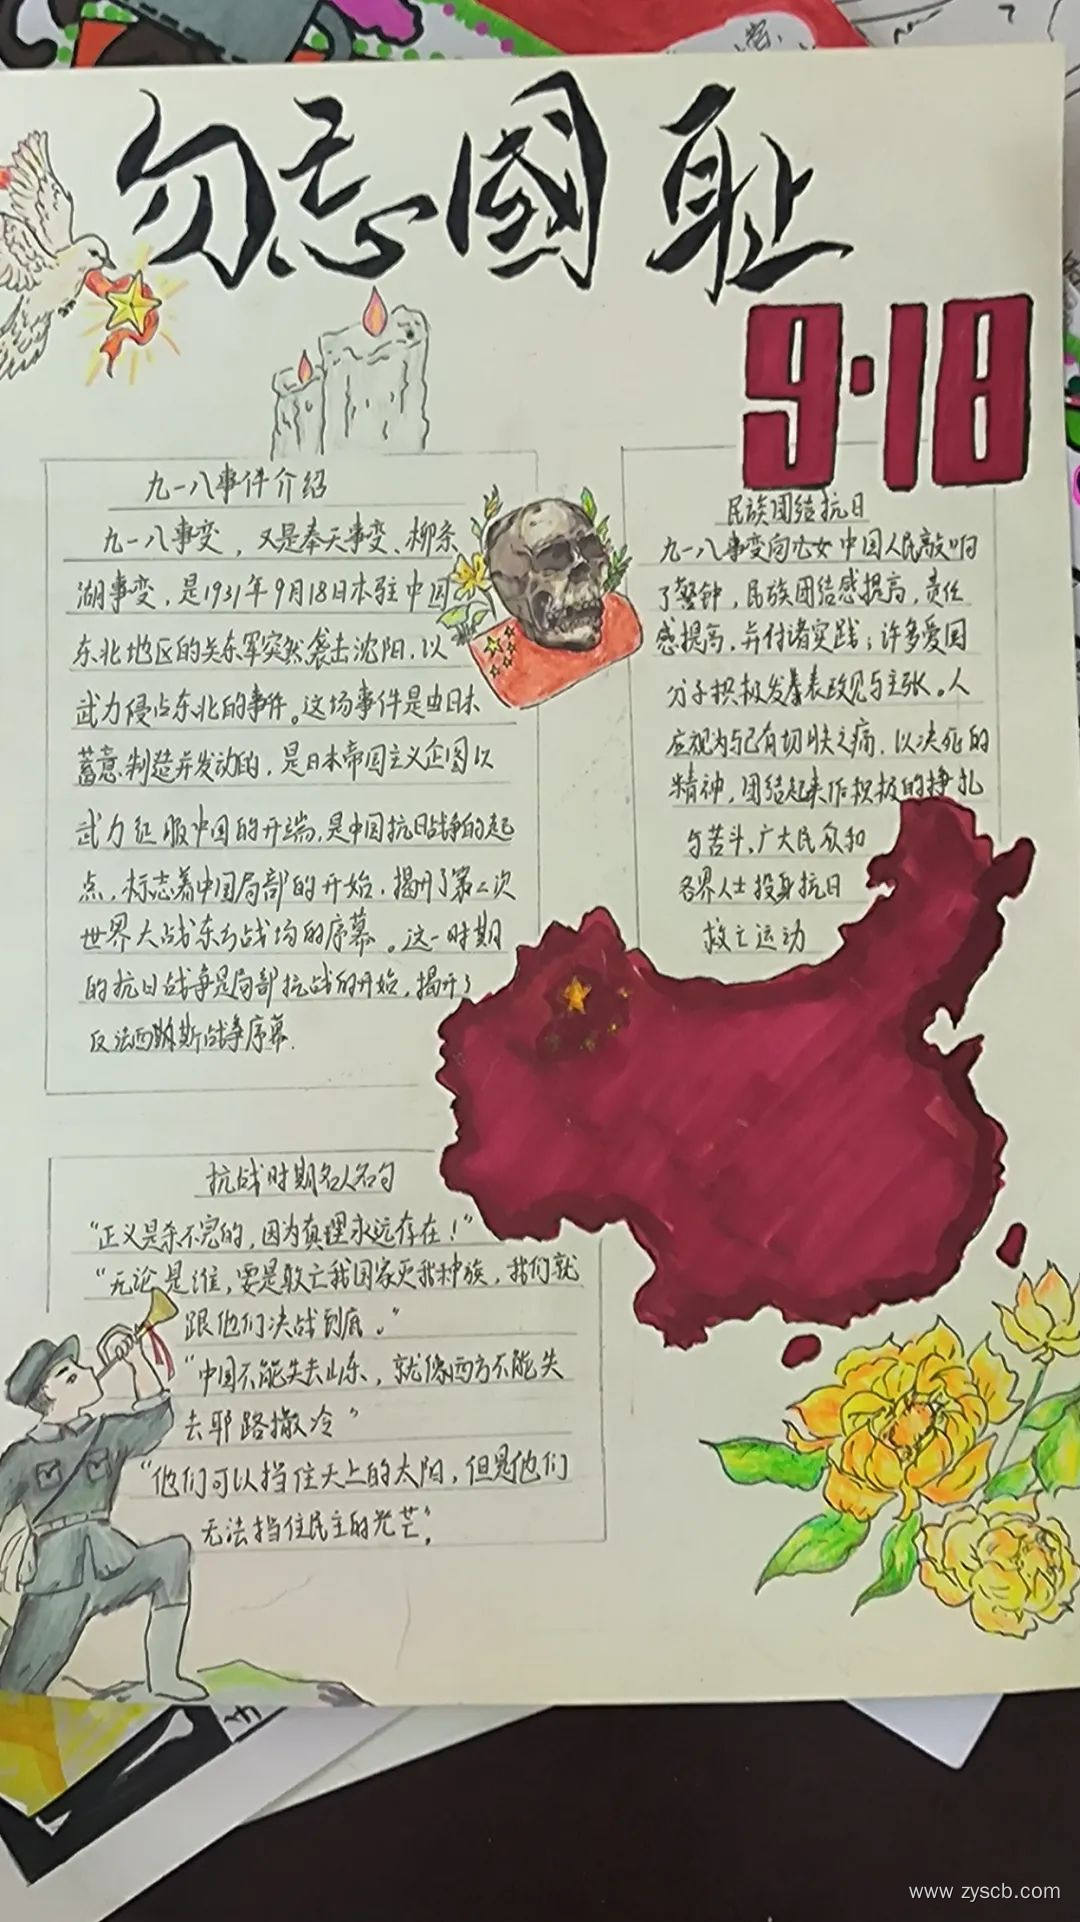 勿忘國耻
9·18
九一八事件介绍
九一八事变，又是奉天事变、柳条
湖事变，是1931年9月18日本驻中国
东北地区的关东军突然袭击沈阳，以
武力侵占东北的事件。这场事件是由日本
蓄意制造并发动的，是日本帝国主义企图以
武力征服中国的开端，是中国抗日战争的起
点，标志着中国局部的开始，揭开了第二次
世界大战东方战场的序幕。这一时期
的抗日战争是局部抗战的开始，揭开了
反法西斯战争序幕.
民族团结抗日
九一八事变向 中国人民敲响
了警钟，民族团结感提高，责任
感提高，并付诸实践；许多爱国
分子积极发表政见与主张。人
应视为与己有切肤之痛，以决死的
精神，团结起来作积极的挣扎
与苦斗、广大民众和
各界人士投身抗日
救亡运动
抗战时期名人名句
“正义是杀不完的，因为真理永远存在！”
“无论是谁，要是敢亡我国家灭我种族，我们就
跟他们决战到底。”
“中国不能失去山东，就像西方不能失
去耶路撒冷”
“他们可以挡住天上的太阳，但是他们
无法挡住民主的光芒”
www zyscb.com